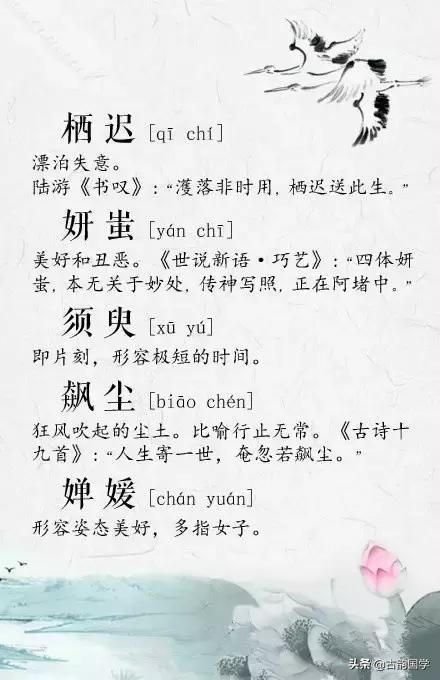 栖迟 [qī chí]
漂泊失意。
陆游《书叹》：“濩落非时用，栖迟送此生。”
妍蚩 [yán chī]
美好和丑恶。《世说新语·巧艺》：“四体妍
蚩，本无关于妙处，传神写照，正在阿堵中。”
须臾 [xū yú]
即片刻，形容极短的时间。
飙尘 [biāo chén]
狂风吹起的尘土。比喻行止无常。《古诗十
九首》：“人生寄一世，奄忽若飙尘。”
婵媛 [chán yuán]
形容姿态美好，多指女子。
头条 @古韵国学